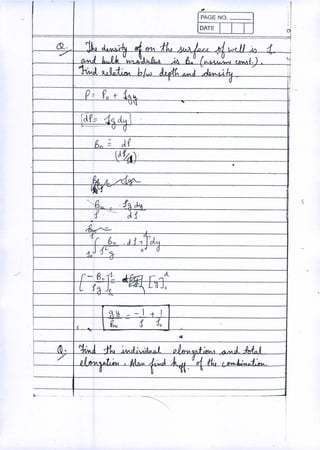 PAGE NO.
DATE
Q. The density of on the surface of well is ρ₀
and bulk modulus is Bm (assume const.).
Find relation b/w depth and density.
P = P₀ + ρgy
dP = ρg dy
Bm = dP
(dρ/ρ)
Bm = ρg dy
ρ dρ
∫ Bm dρ = ∫ dy
ρ₀ ρ² g 0
[-Bm / ρg] = [y]
gy = -1 + 1
Bm ρ ρ₀
Q. Find the individual elongations and total
elongation. Also find keff. of the combination.